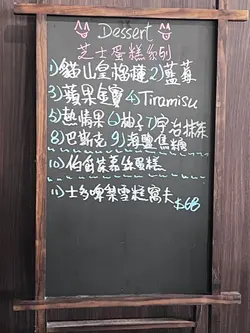 Dessert
芝士蛋糕系列
1)貓山皇榴槤 2)藍莓
3)蘋果金寶 4)Tiramisu
5)熱情果 6)柚子 7)宇治抹茶
8)巴斯克 9)海鹽焦糖
10)伯爵茶慕絲蛋糕
11)士多啤梨雪糕窩卡
$68